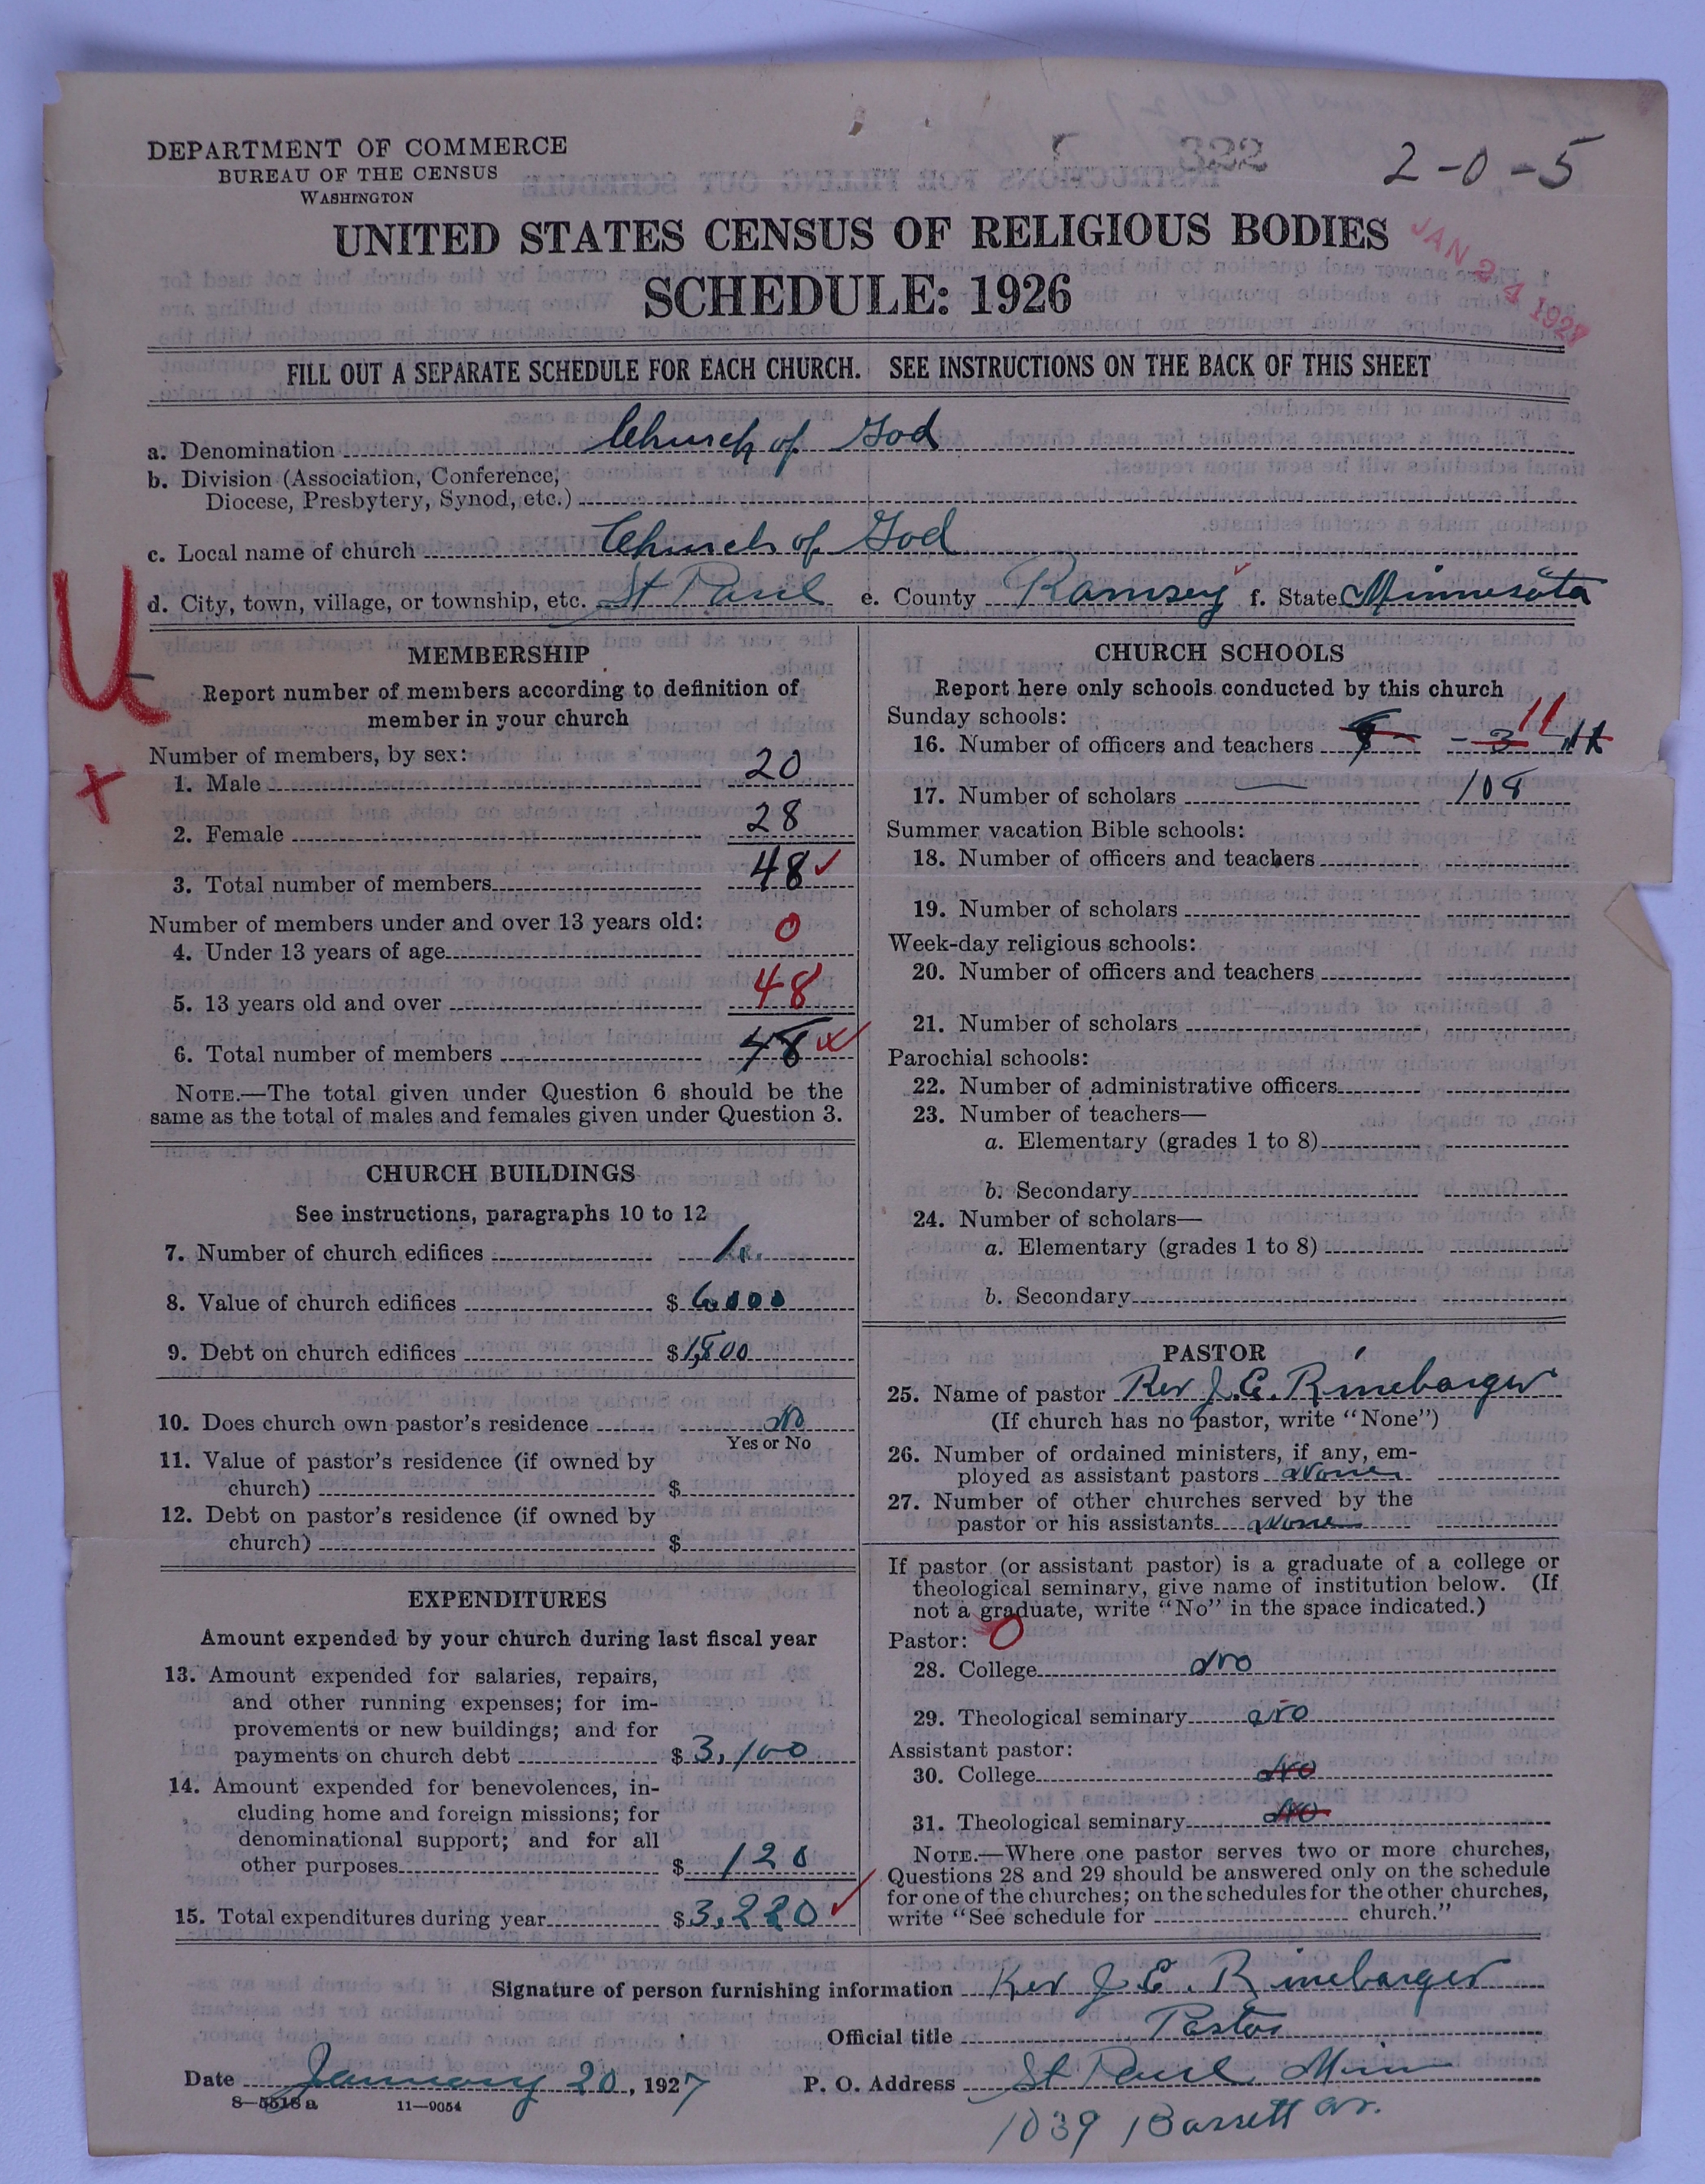 DEPARTMENT OF COMMERCE
BUREAU OF THE CENSUS
WASHINGTON
322
2-0-5
JAN 24 1927
UNITED STATES CENSUS OF RELIGIOUS BODIES
SCHEDULE: 1926
FILL OUT A SEPARATE SCHEDULE FOR EACH CHURCH. SEE INSTRUCTIONS ON THE BACK OF THIS SHEET
a. Denomination Church of God
b. Division (Association, Conference,
Diocese, Presbytery, Synod, etc.)
c. Local name of church Church of God
d. City, town, village, or township, etc. St Paul e. County Ramsey f. State Minnesota
U
+
MEMBERSHIP
Report number of members according to definition of
member in your church
Number of members, by sex:
1. Male 20
2. Female 28
3. Total number of members 48 ✓
Number of members under and over 13 years old:
4. Under 13 years of age 0
5. 13 years old and over 48
6. Total number of members 48
NOTE.—The total given under Question 6 should be the
same as the total of males and females given under Question 3.
CHURCH BUILDINGS
See instructions, paragraphs 10 to 12
7. Number of church edifices 1
8. Value of church edifices $ 6,000
9. Debt on church edifices $ 1,800
10. Does church own pastor's residence No
Yes or No
11. Value of pastor's residence (if owned by
church) $
12. Debt on pastor's residence (if owned by
church) $
EXPENDITURES
Amount expended by your church during last fiscal year
13. Amount expended for salaries, repairs,
and other running expenses; for im-
provements or new buildings; and for
payments on church debt $ 3,100
14. Amount expended for benevolences, in-
cluding home and foreign missions; for
denominational support; and for all
other purposes $ 120
15. Total expenditures during year $ 3,220 ✓
CHURCH SCHOOLS
Report here only schools conducted by this church
Sunday schools:
16. Number of officers and teachers 3 11
17. Number of scholars 108
Summer vacation Bible schools:
18. Number of officers and teachers
19. Number of scholars
Week-day religious schools:
20. Number of officers and teachers
21. Number of scholars
Parochial schools:
22. Number of administrative officers
23. Number of teachers—
a. Elementary (grades 1 to 8)
b. Secondary
24. Number of scholars—
a. Elementary (grades 1 to 8)
b. Secondary
PASTOR
25. Name of pastor Rev J. E. Rinebarger
(If church has no pastor, write "None")
26. Number of ordained ministers, if any, em-
ployed as assistant pastors None
27. Number of other churches served by the
pastor or his assistants None
If pastor (or assistant pastor) is a graduate of a college or
theological seminary, give name of institution below. (If
not a graduate, write "No" in the space indicated.)
Pastor: 0
28. College No
29. Theological seminary No
Assistant pastor:
30. College No
31. Theological seminary No
NOTE.—Where one pastor serves two or more churches,
Questions 28 and 29 should be answered only on the schedule
for one of the churches; on the schedules for the other churches,
write "See schedule for church."
Signature of person furnishing information Rev J. E. Rinebarger
Official title Pastor
Date January 20, 1927 P. O. Address St Paul Minn
8—5518 a 11—9054
1039 Barrett av.